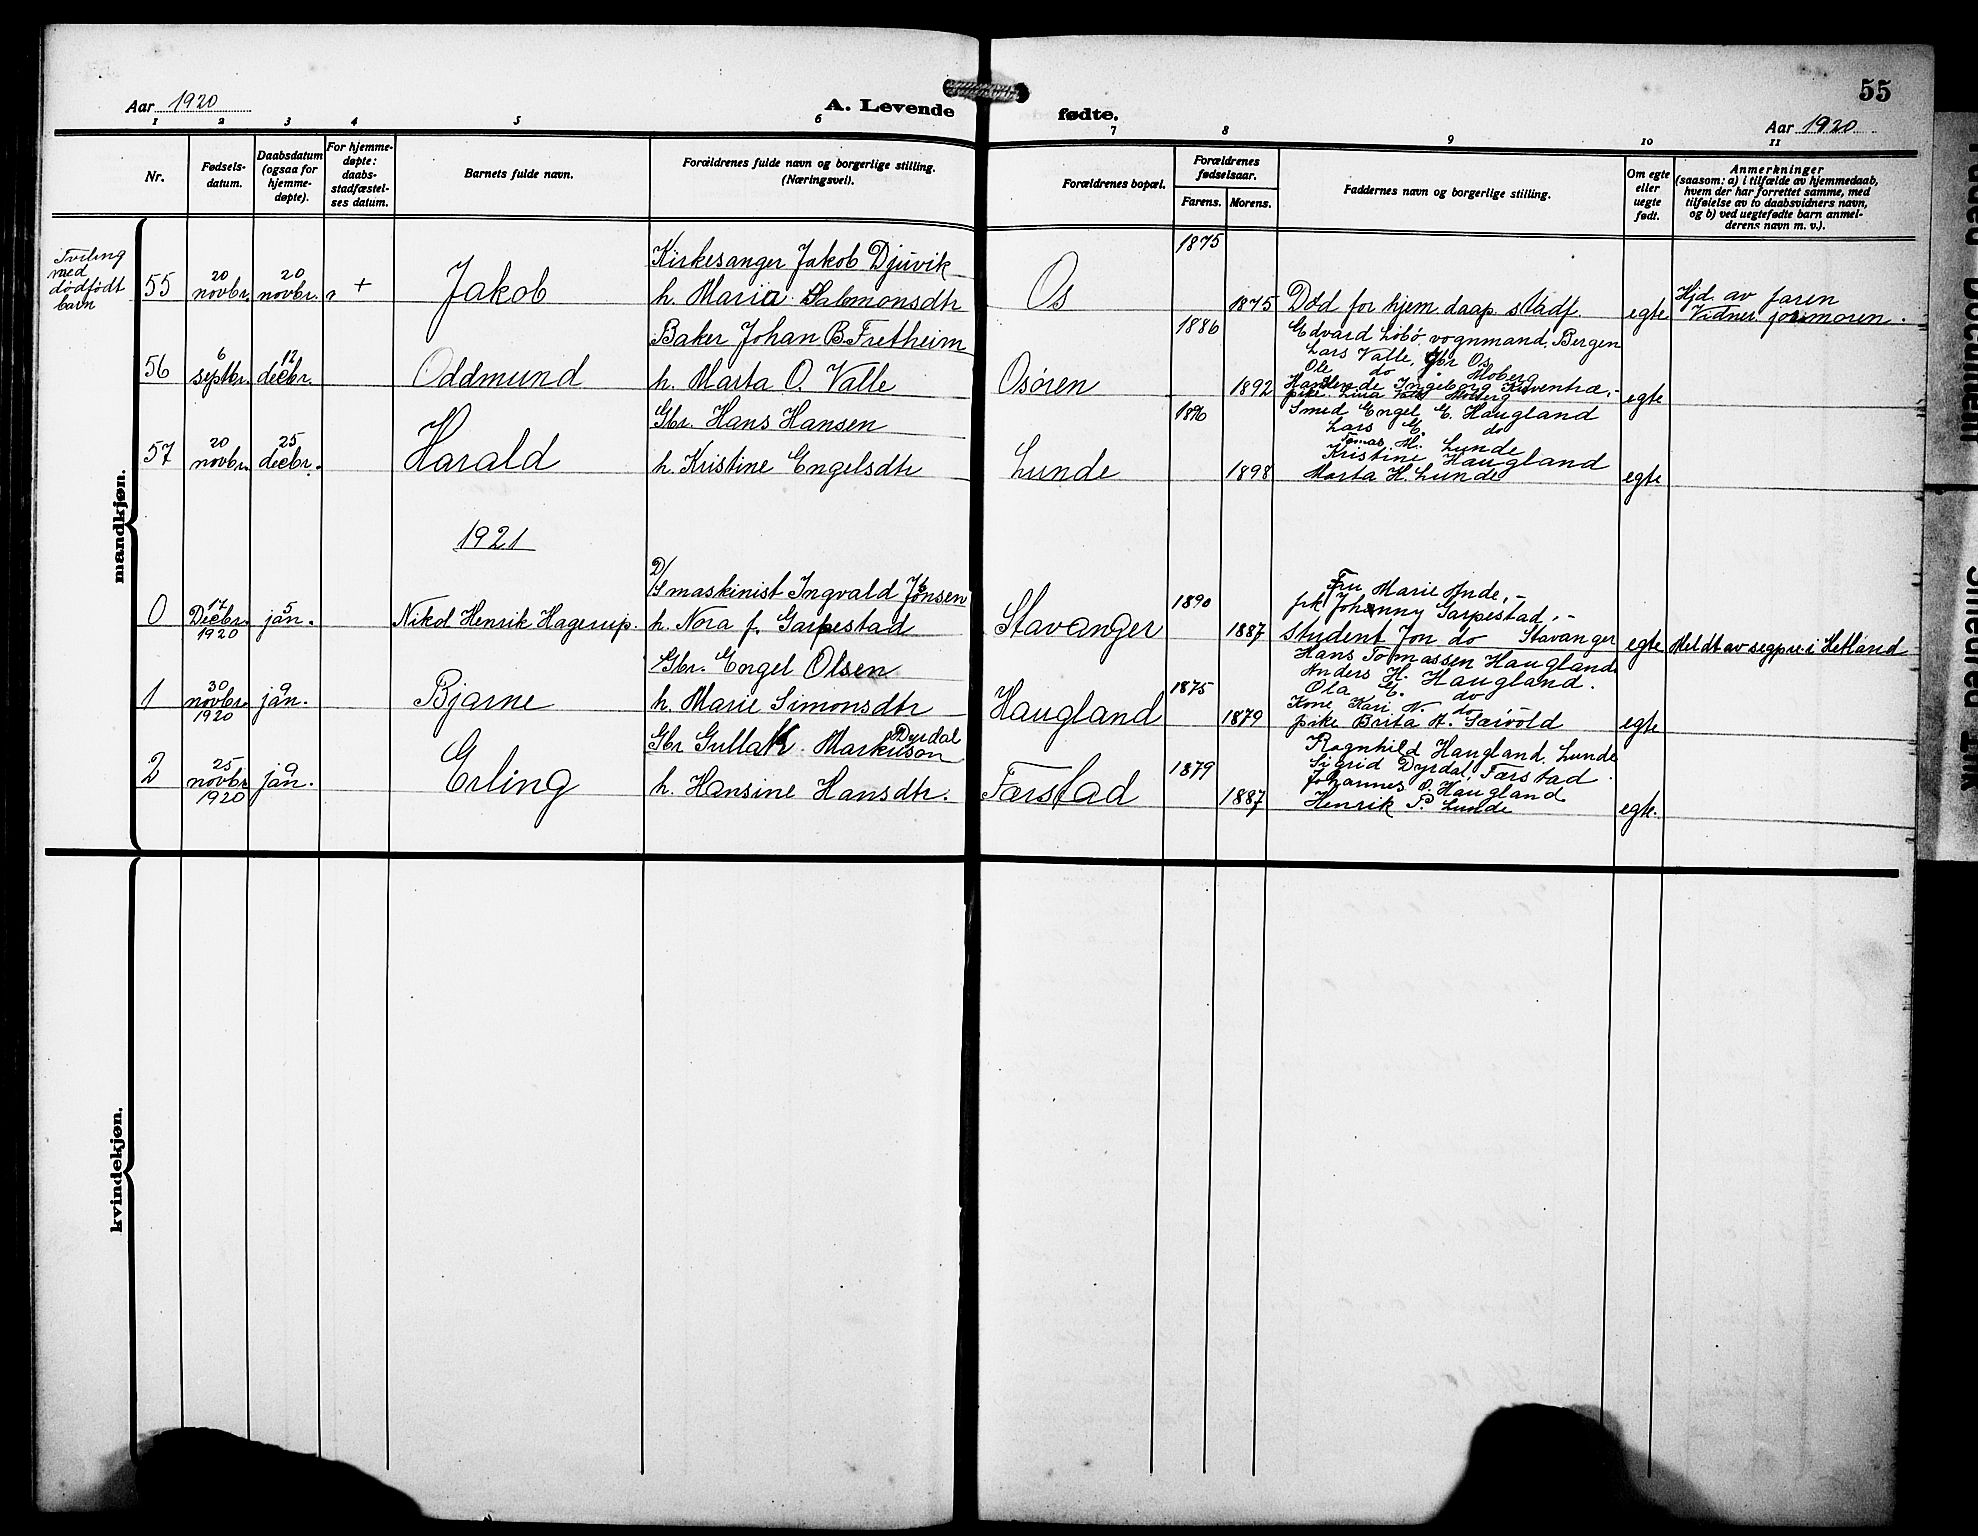 55
Aar 1920
A. Levende fødte.
Aar 1920
1 2 3 4 5 6 7 8 9 10 11
Nr.
Fødsels-
datum.
Daabsdatum
(ogsaa for
hjemme-
døpte).
For hjemme-
døpte:
daabs-
stadfæstel-
ses datum.
Barnets fulde navn.
Forældrenes fulde navn og borgerlige stilling.
(Næringsvei).
Forældrenes bopæl.
Forældrenes
fødselsaar.
Farens. Morens.
Faddernes navn og borgerlige stilling.
Om egte
eller
uegte
født.
Anmerkninger
(saasom: a) i tilfælde av hjemmedaab,
hvem der har forrettet samme, med
tilføielse av to daabsvidners navn,
og b) ved uegtefødte barn anmel-
derens navn m. v.).
mandkjøn.
Tviling
med
dødfødt
barn
55
20
novbr.
20
novbr.
+
Jakob
Kirkesanger Jakob Djuvik
h. Maria Salmonsdtr
Os
1875
1875
Død for hjem. daap. stadf.
egte
Hjd. av faren
Vidner jormoren.
56
6
septbr.
12
decbr.
Oddmund
Baker Johan B. Fretheim
h. Marta O. Valle
Osøren
1886
1892
Edvard Libø, vognmand, Bergen
Lars Valle, Gbr Os
Ole do Moberg
Ingeborg
egte
57
20
novbr.
25
decbr.
Harald
Gbr. Hans Hansen
h. Kristine Engelsdtr
Lunde
1896
1898
Smed Engel E. Haugland
Lars E. do
Tomas H. Lunde
Kristine Haugland
Marta H. Lunde
egte
1921
0
17
Decbr.
1920
5
jan.
Nikol Henrik Hagerup.
2/
maskinist Ingvald Jonsen
h. Nora f. Garpestad
Stavanger
1890
1887
Fru Marie Ande,-
frk Johanny Garpestad,-
student Jon do Stavanger
egte
Meldt av sogpr. i Hetland
1
30
novbr.
1920
9
jan.
Bjarne
Gbr. Engel Olsen
h. Marie Simonsdtr
Haugland
1875
1879
Hans Tomassen Haugland
Anders H. Haugland.
Ola E. do
Kone Kari N. do
pike Brita H. Særvold
egte
2
25
novbr.
1920
9
jan.
Erling
Gbr Gullak Markuson Dyrdal
h. Hansine Hansdtr.
Farstad
1879
1887
Ragnhild Haugland. Lunde
Sigrid Dyrdal, Farstad.
Johannes O. Haugland
Henrik P. Lunde
egte.
kvindekjøn.